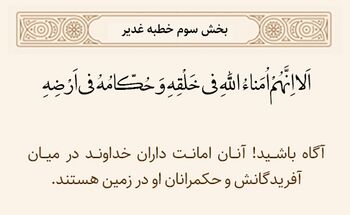 بخش سوم خطبه غدیر
اَلا اِنَّهُمْ اُمَناءُ اللهِ فی خَلْقِهِ وَ حُکّامُهُ فی اَرْضِهِ
آگاه باشید! آنان امانت داران خداوند در میان
آفریدگانش و حکمرانان او در زمین هستند.